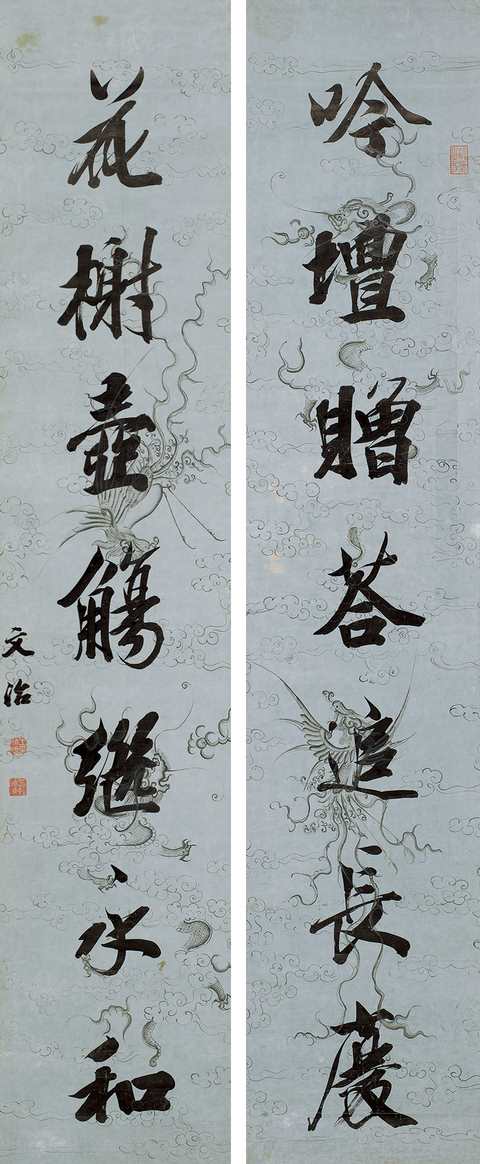 吟壇贈荅追長慶
花榭壺觴繼永和
文治